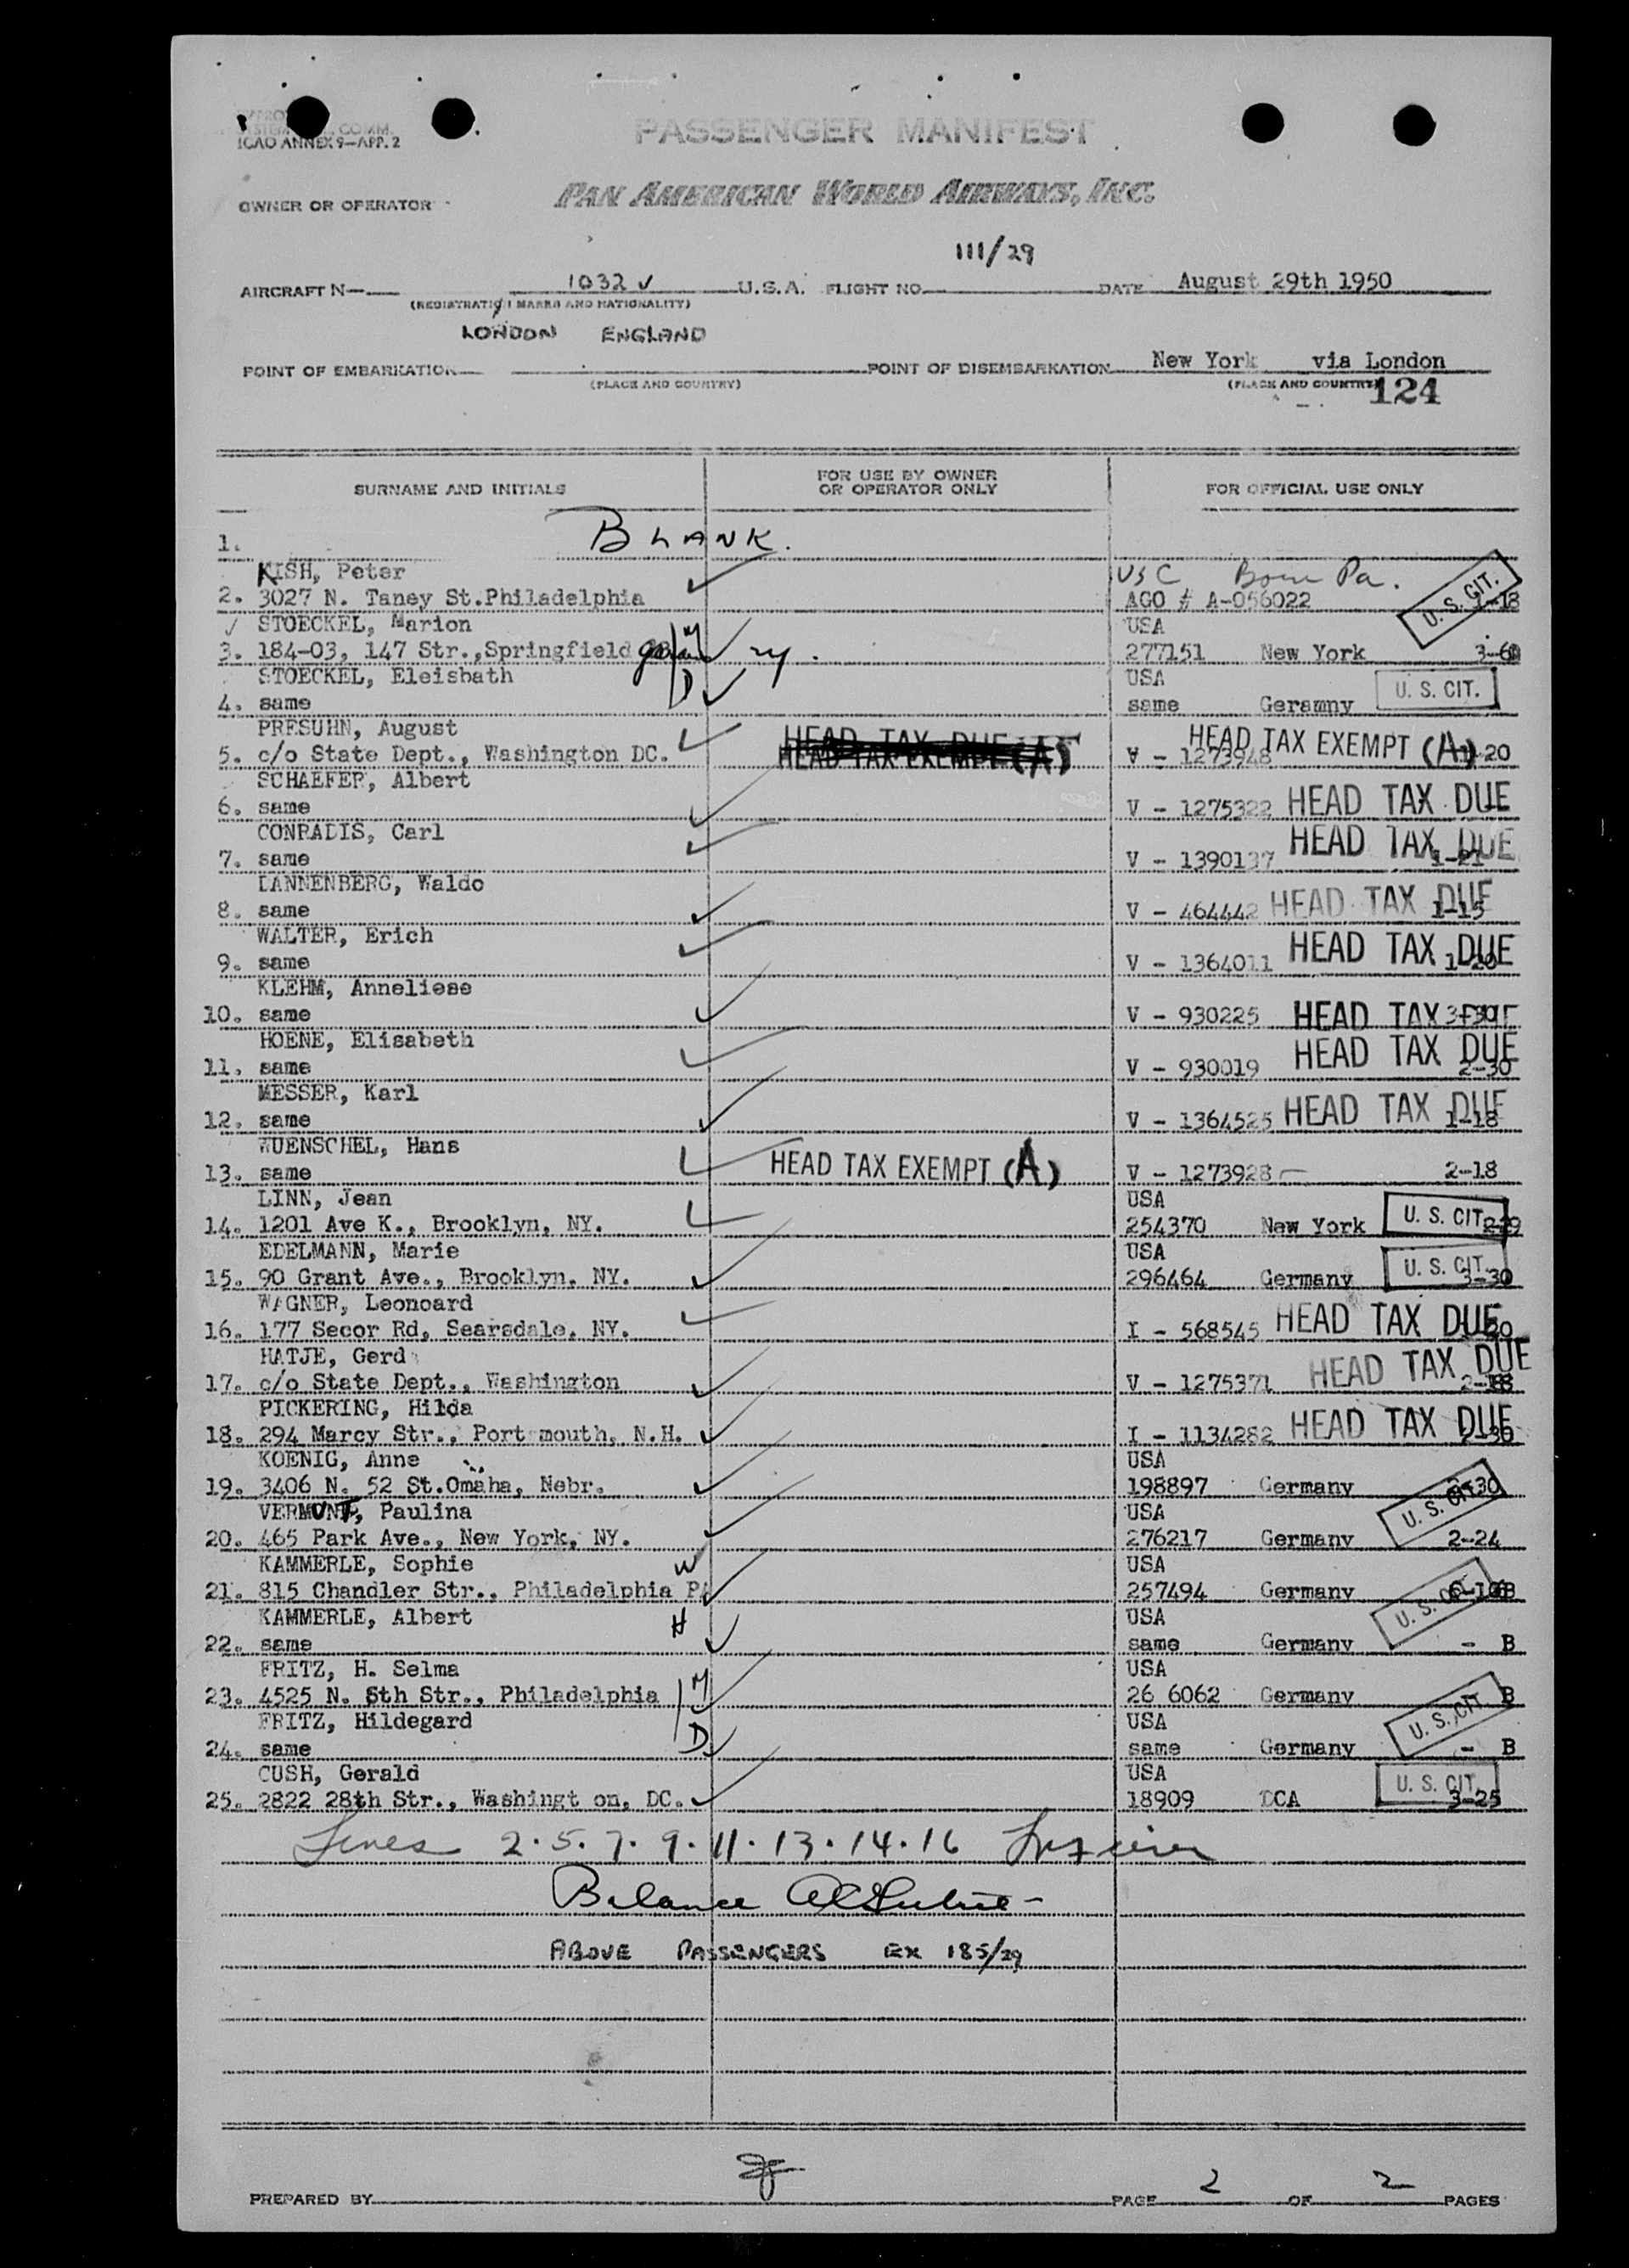 COMM.
ICAO ANNEX 9—APP. 2
PASSENGER MANIFEST
OWNER OR OPERATOR
PAN AMERICAN WORLD AIRWAYS, INC.
111/29
AIRCRAFT N— 1032 V U.S.A. FLIGHT NO. DATE August 29th 1950
(REGISTRATION MARKS AND NATIONALITY)
LONDON ENGLAND
POINT OF EMBARKATION POINT OF DISEMBARKATION New York via London
(PLACE AND COUNTRY) (PLACE AND COUNTRY) 124
SURNAME AND INITIALS FOR USE BY OWNER OR OPERATOR ONLY FOR OFFICIAL USE ONLY
1. BLANK.
KISH, Peter USC Born Pa.
2. 3027 N. Taney St.Philadelphia AGO # A-056022 U.S. CIT. 1-18
STOECKEL, Marion M USA
3. 184-03, 147 Str.,Springfield ny. 277151 New York 3-6
STOECKEL, Eleisbath D USA
4. same same Geramny U. S. CIT.
PRESUHN, August HEAD TAX DUE HEAD TAX EXEMPT (A)
5. c/o State Dept., Washington DC. HEAD TAX EXEMPT (A) V - 1273948 20
SCHAEFER, Albert
6. same V - 1275322 HEAD TAX DUE
CONRADIS, Carl
7. same V - 1390137 HEAD TAX DUE 1-21
DANNENBERG, Waldo
8. same V - 464442 HEAD TAX DUE 1-15
WALTER, Erich
9. same V - 1364011 HEAD TAX DUE 1-20
KLEHM, Anneliese
10. same V - 930225 HEAD TAX DUE 3-30
HOENE, Elisabeth
11. same V - 930019 HEAD TAX DUE 2-30
MESSER, Karl
12. same V - 1364525 HEAD TAX DUE 1-18
WUENSCHEL, Hans
13. same HEAD TAX EXEMPT (A) V - 1273928 2-18
LINN, Jean USA
14. 1201 Ave K., Brooklyn, NY. 254370 New York U. S. CIT. 2-29
EDELMANN, Marie USA
15. 90 Grant Ave., Brooklyn, NY. 296464 Germany U. S. CIT. 3-30
WAGNER, Leonoard
16. 177 Secor Rd, Searsdale, NY. I - 568545 HEAD TAX DUE
HATJE, Gerd
17. c/o State Dept., Washington V - 1275371 HEAD TAX DUE 2-18
PICKERING, Hilda
18. 294 Marcy Str., Port mouth, N.H. I - 1134282 HEAD TAX DUE 2-30
KOENIG, Anne USA
19. 3406 N. 52 St.Omaha, Nebr. 198897 Germany
VERMONT, Paulina USA U. S. CIT.
20. 465 Park Ave., New York, NY. 276217 Germany 2-24
KAMMERLE, Sophie W USA
21. 815 Chandler Str., Philadelphia PA 257494 Germany U. S. CIT.
KAMMERLE, Albert H USA
22. same same Germany - B
FRITZ, H. Selma M USA
23. 4525 N. 8th Str., Philadelphia 26 6062 Germany - B
FRITZ, Hildegard D USA U. S. CIT.
24. same same Germany - B
CUSH, Gerald USA
25. 2822 28th Str., Washingt on, DC. 18909 DCA U. S. CIT. 3-25
Lines 2. 5. 7. 9. 11. 13. 14. 16
Balance
ABOVE PASSENGERS EX 185/29
PREPARED BY PAGE 2 OF 2 PAGES